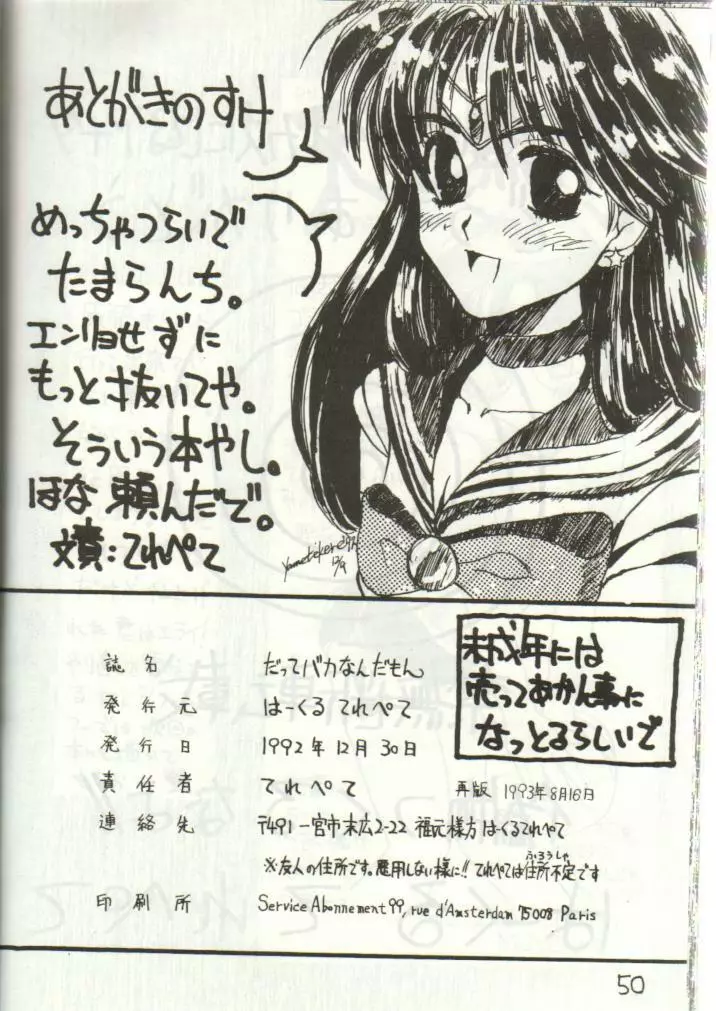 あとがきのすけ
めっちゃつらいで
たまらんち。
エンリョせずに
もっと抜いてや。
そういう本やし。
ほな頼んだで。
文責：てれぺて
12/9
未成年には
売ってあかん事に
なっとるらしいで
誌名 だってバカなんだもん
発行元 はーくるてれぺて
発行日 1992年12月30日
責任者 てれぺて 再版 1993年8月16日
連絡先 〒491 一宮市末広2-22 福元様方 はーくるてれぺて
※友人の住所です。悪用しない様に!! てれぺては住所不定です
ふろうしゃ
印刷所 Service Abonnement 99, rue d'Amsterdam 75008 Paris
50